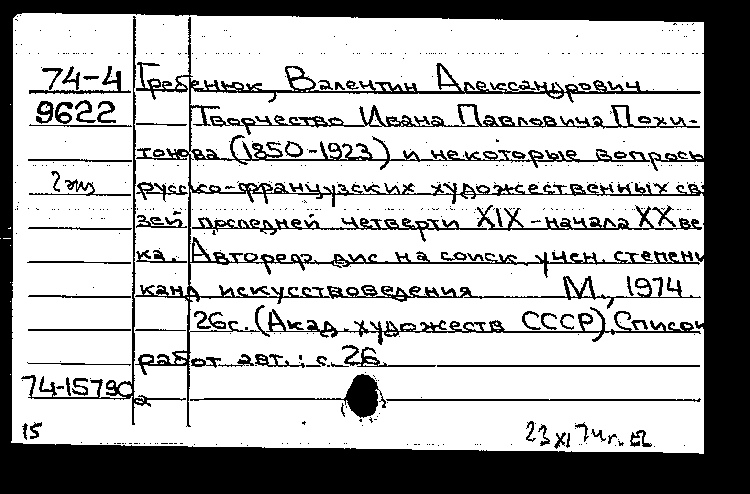 74-4 Гребенюк, Валентин Александрович
9622 Творчество Ивана Павловича Похи-
тонова (1850-1923) и некоторые вопросы
2 экз русско-французских художественных свя
зей последней четверти XIX - начала XX ве
ка. Автореф. дис. на соиск. учен. степени
канд искусствоведения М., 1974
26с. (Акад. художеств СССР). Список
работ авт.: с. 26.
74-15790
15 23 XI 74г.